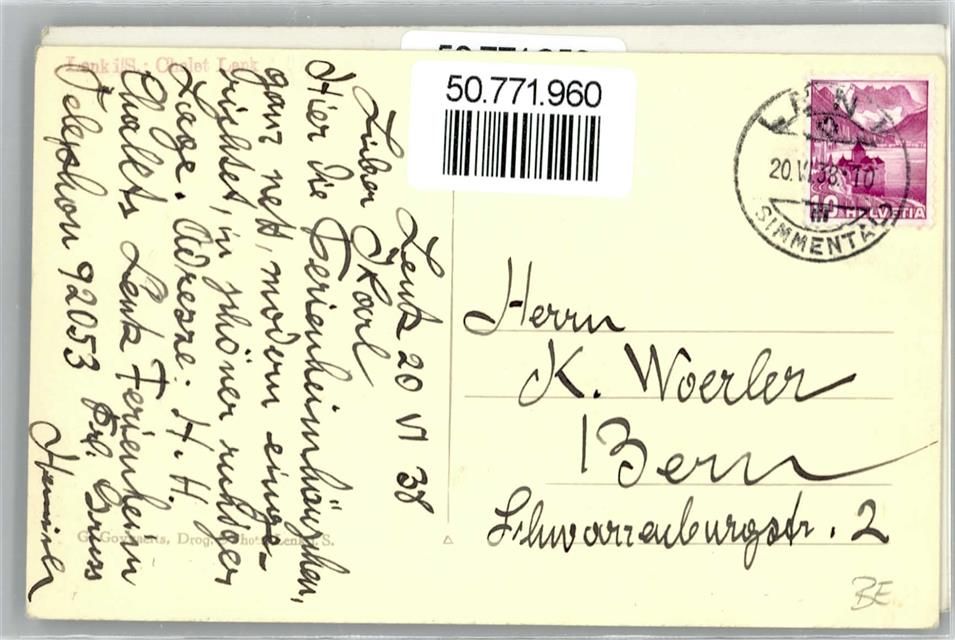 50.771.960
Lenk i/S.: Chalet Lenk
Lenk 20 VI 38
Lieber Karl
Hier die Ferienheimhäuschen,
ganz nett, modern einge-
richtet, in schöner ruhiger
Lage. Adresse: H. H.
Chalets Lenk Ferienheim
Telephon 92053 frl. Gruss
LENK
20.VI.38. 10
SIMMENTAL
10 HELVETIA
Herrn
K. Woerler
Bern
Schwarzenburgstr. 2
S.
BE